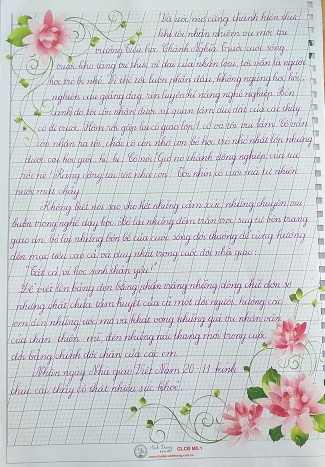 Đã ... mơ càng thành hiện thực
khi tôi nhận nhiệm vụ mới tại
trường tiểu học Chánh Nghĩa. Trước cuộc sống,
trước kho tàng tri thức vĩ đại của nhân loại, tôi vẫn là người
học trò bé nhỏ. Vì thế tôi luôn phấn đấu, không ngừng học hỏi,
nghiên cứu giảng dạy, rèn luyện kĩ năng nghề nghiệp. Bên
cạnh đó tôi còn nhận được sự quan tâm, dìu dắt của các thầy
cô đi trước. Hôm rồi gặp lại cô giáo lớp 1, cô và tôi vui lắm. Cô vẫn
còn nhận ra tôi, chắc cô còn nhớ con bé học trò nhỏ nhất lớp nhưng
được cái học giỏi, hi, hi! Cô nói: Giờ nó thành đồng nghiệp của tụi
rồi nè! Ráng công tác tốt nha con! Tôi nhìn cô cười mà tự nhiên
nước mắt chảy!
Không biết nói sao cho hết những cảm xúc, những chuyện vui
buồn trong nghề dạy học. Bỏ lại những đêm trăn trở, suy tư bên trang
giáo án, bỏ lại những bộn bề của cuộc sống đời thường để cùng hướng
đến mục tiêu cao cả và duy nhất trong cuộc đời nhà giáo:
"Tất cả vì học sinh thân yêu!"
Để viết lên bảng đen bằng phấn trắng những dòng chữ đơn sơ
nhưng chất chứa tâm huyết của cả một đời người, hướng các
em đến những ước mơ và khát vọng, những giá trị nhân văn
của chân - thiện - mĩ, đến những nấc thang mới trong cuộc
đời bằng chính đôi chân của các em.
Nhân ngày Nhà giáo Việt Nam 20-11 kính
chúc các thầy cô thật nhiều sức khỏe!
GLCB M5.1